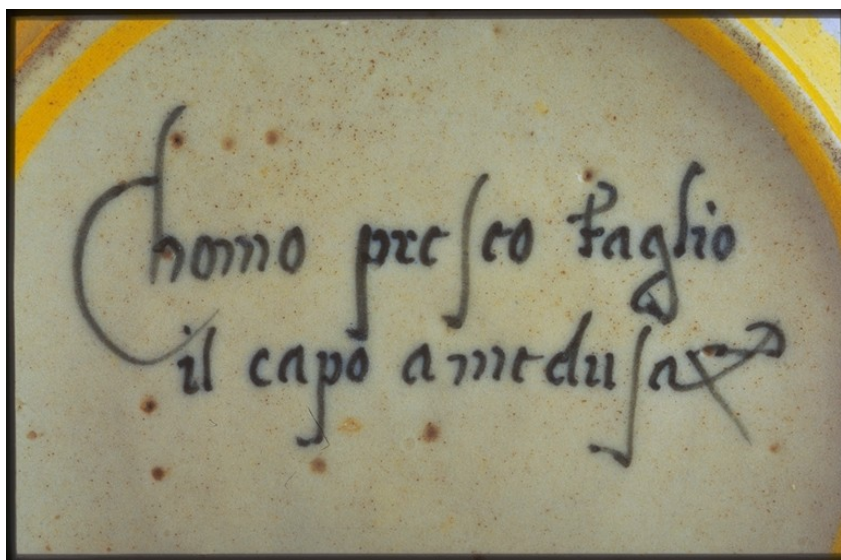 Chomo preseo taglio
il capo a medusa